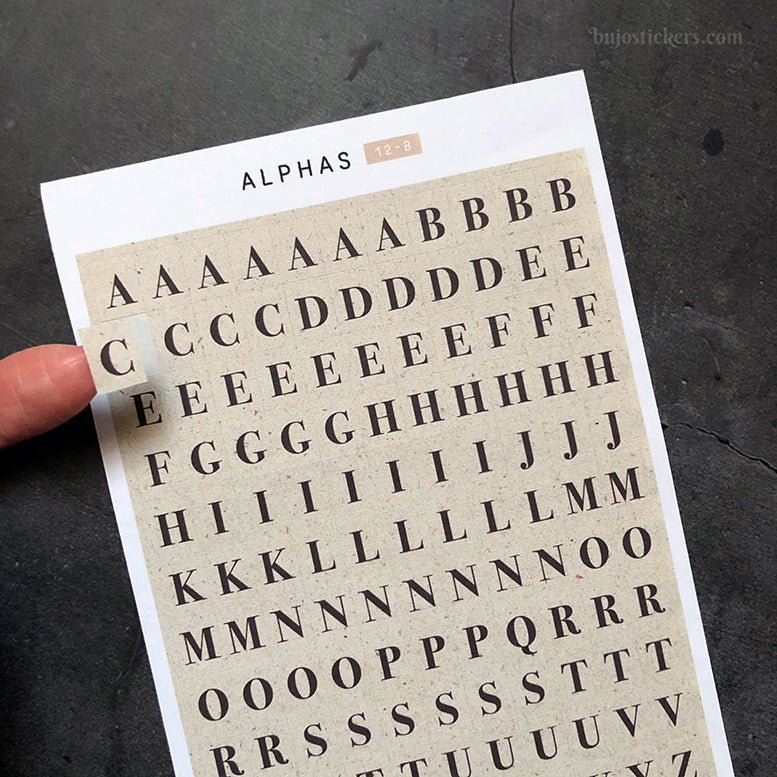 bujostickers.com
ALPHAS 12-B
A A A A A A A B B B B
C C C C D D D D D E E
E E E E E E E E F F F
F G G G G H H H H H H
H I I I I I I I J J J
K K K L L L L L L M M
M M N N N N N N N O O
O O O O P P P Q R R R
R R S S S S S S T T T
T T U U U U V V
Y Z